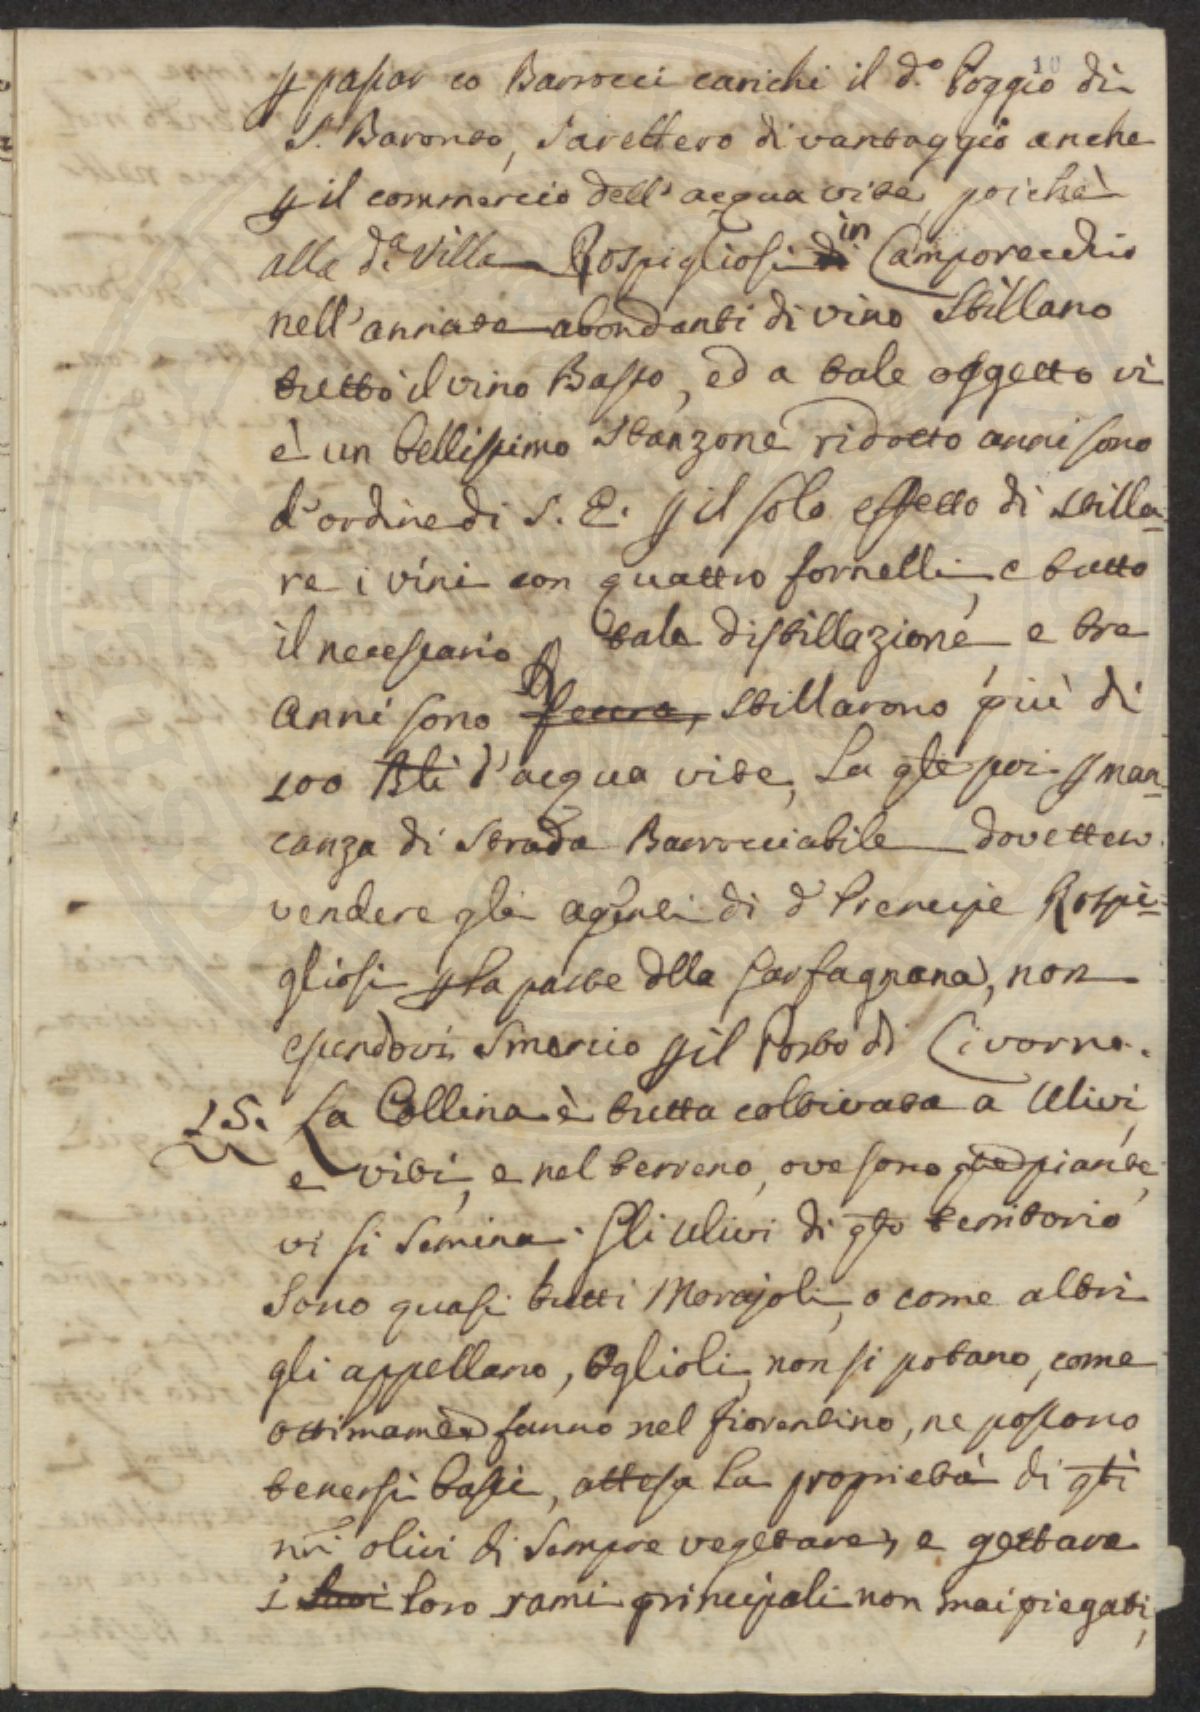 10
p passar co Barrocci carichi il d.o Poggio di
S. Baronto, Sarettero di vantaggio anche
p il commercio dell'acqua vite, poichè
alla d.a Villa Rospigliosi di in Camporecchio
nell'annate abondanti di vino Stillano
tutto il vino Basso, ed a tale oggetto vi
è un bellissimo Stanzone ridotto anni sono
d'ordine di S. E. p il solo effetto di stilla=
re i vini con quattro fornelli, e tutto
il necessario p tale distillazione, e tre
Anni sono stillarono più di
100 Bli d'acqua vite, La qle poi p man=
canza di Strada Barrocciabile dovettero
vendere gli agenti di d.o Prencipe Rospi=
gliosi p la parte dlla Garfagnana, non
essendovi Smercio p il Porto di Livorno.
15. La Collina è tutta coltivata a Ulivi,
e viti, e nel terreno, ove sono qte piante,
vi si Semina. Gli Ulivi di qto territorio
Sono quasi tutti Morajoli, o come altri
gli appellano, Oglioli, non si potano, come
ottimamte fanno nel fiorentino, ne possono
tenersi bassi, attesa la proprietà di qti
nri olivi di Sempre vegetare, e gettare
i suoi loro rami principali non mai piegati,